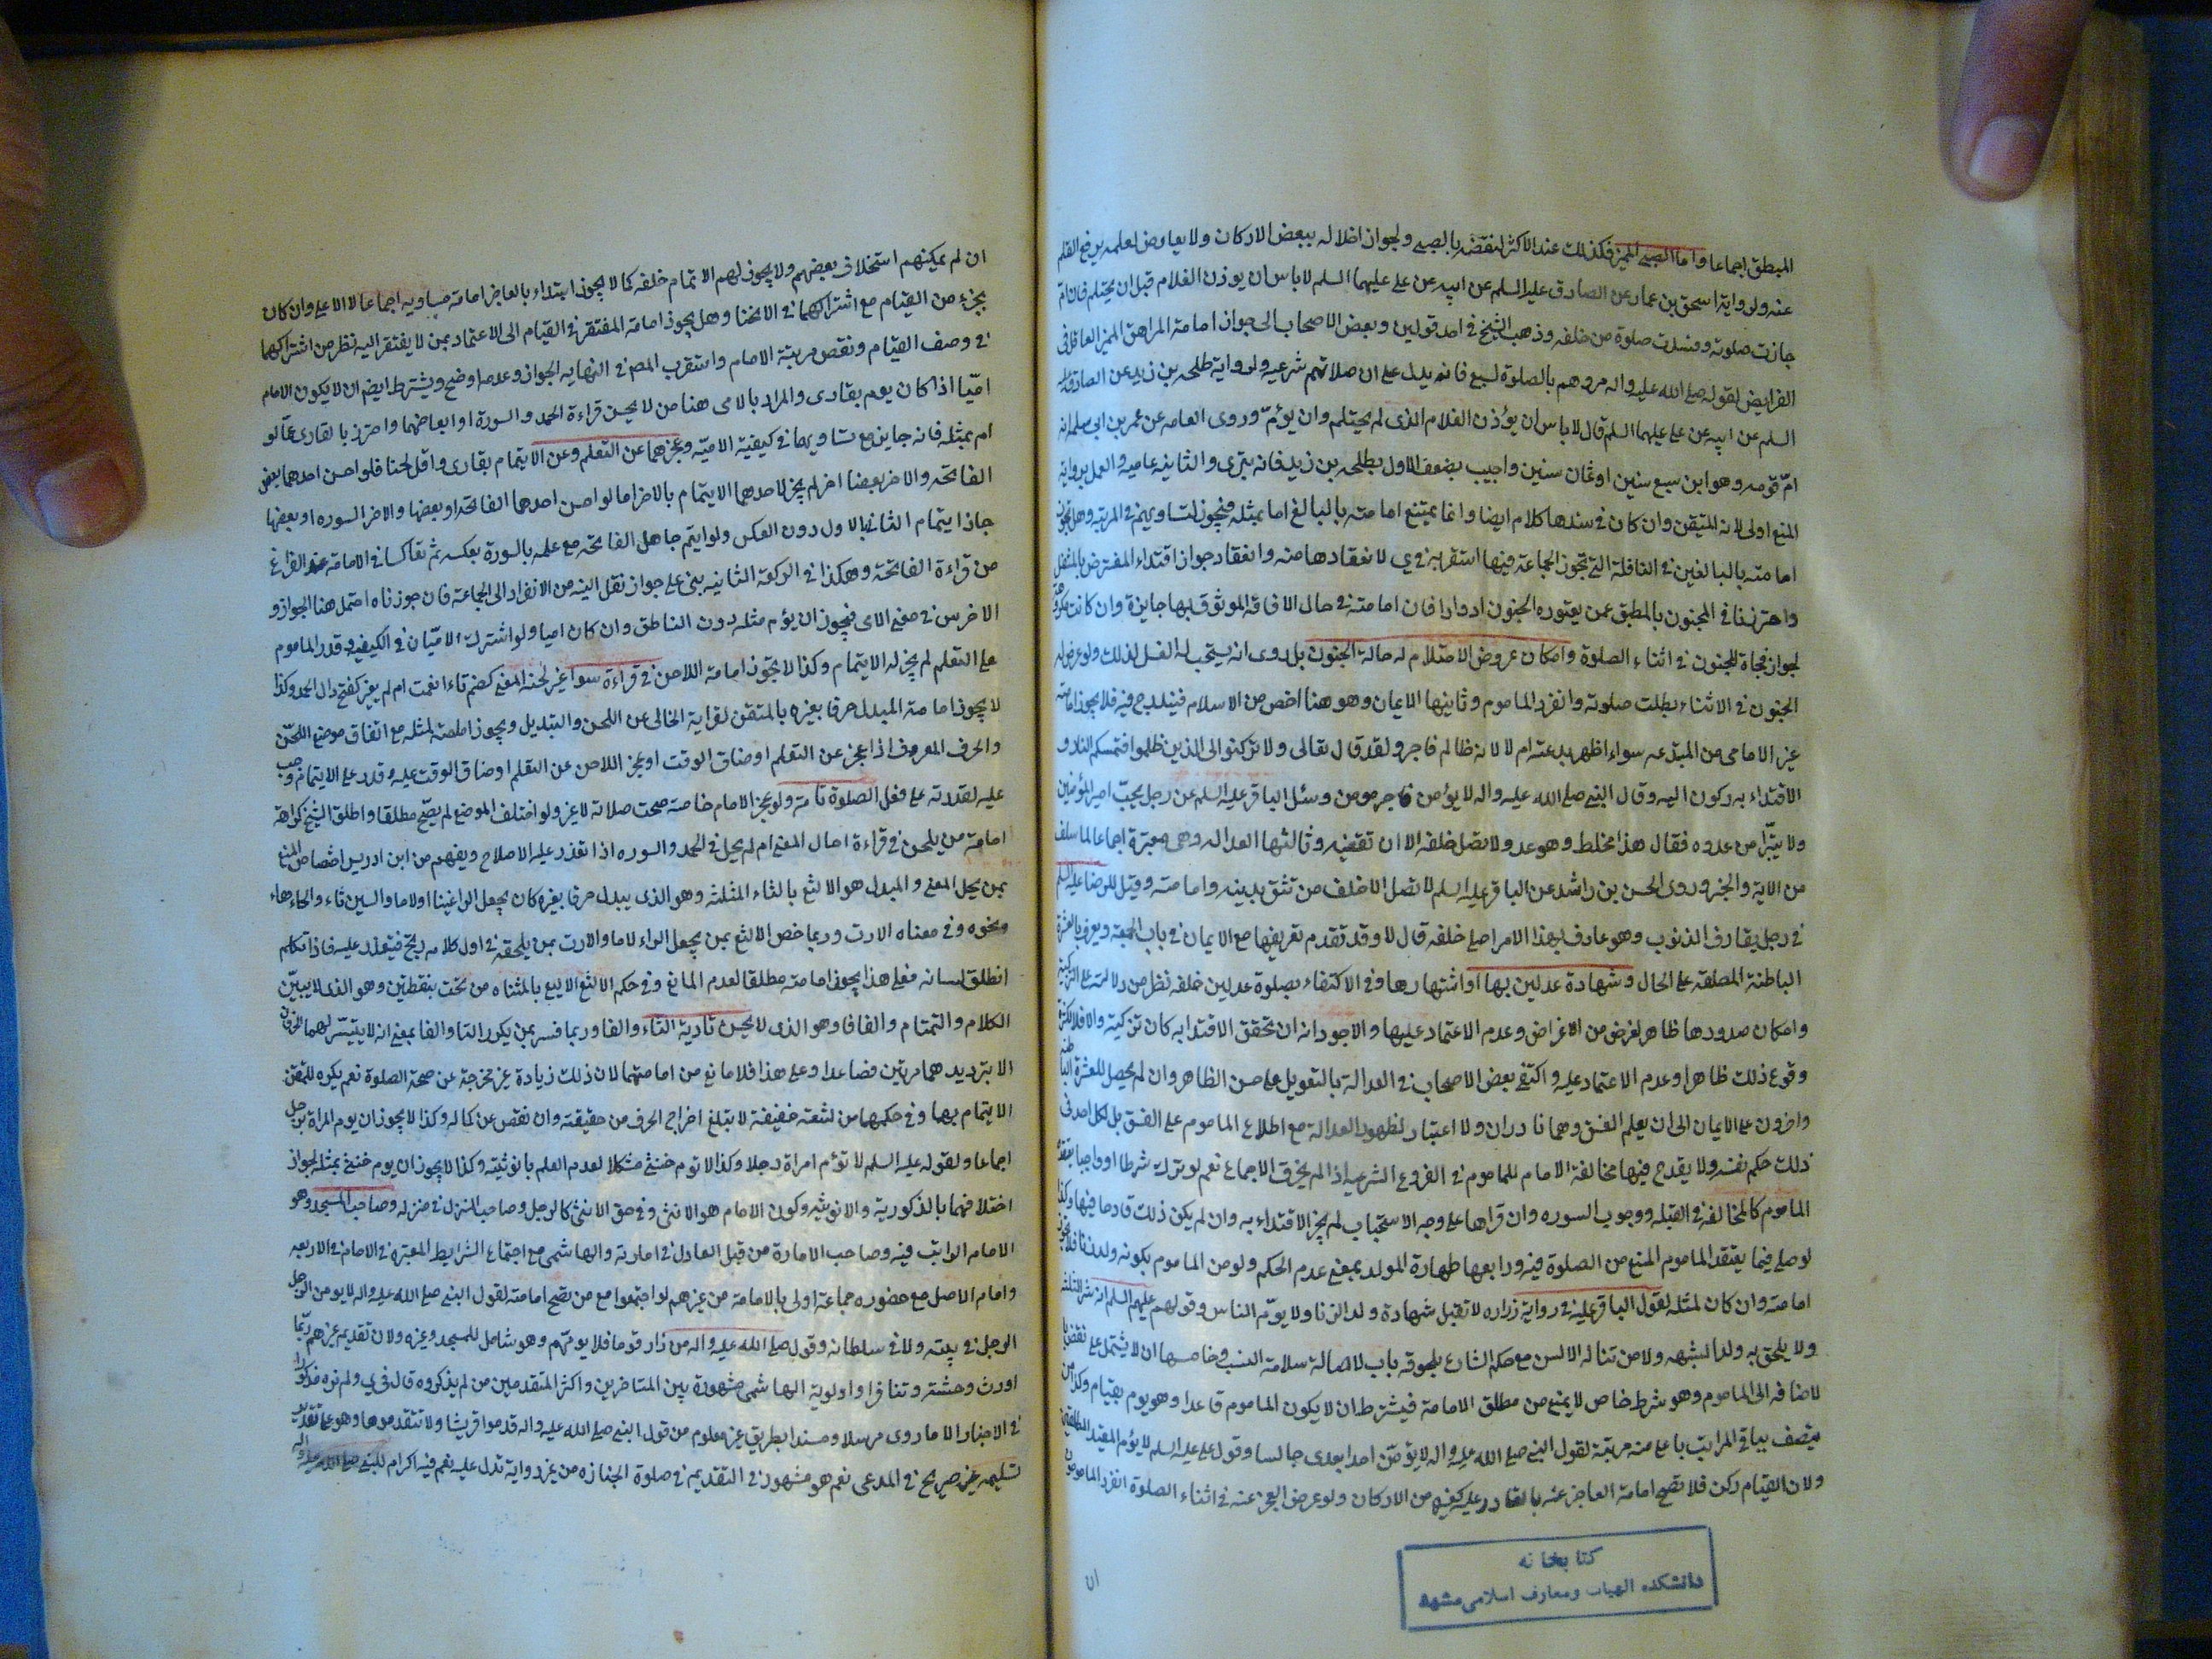 المطبق اجماعا واما الصبي المميز فكذلك عند الاكثر لنقصه بالصبى ولجواز اخلاله ببعض الاركان ولا يعارض لعلمه برفع القلم
عنه ولرواية اسحق بن عمار عن الصادق عليه السلم عن ابيه عن على عليهما السلم لا باس ان يوذن الغلام قبل ان يحتلم فان امّ
جازت صلوته وفسدت صلوة من خلفه وذهب الشيخ في احد قوليه وبعض الاصحاب الى جواز امامة المراهق المميز العاقل في
الفرايض لقوله صلى الله عليه واله مروهم بالصلوة لسبع فانه يدل على ان صلاتهم شرعيه ولرواية طلحه بن زيد عن الصادق عليه
السلم عن ابيه عن على عليهما السلم قال لا باس ان يؤذن الغلام الذى لم يحتلم وان يؤمّ وروى العامه عن عمر بن ابى سلمه انه
امّ قومه وهو ابن سبع سنين او ثمان سنين واجيب بضعف الاول بطلحه بن زيد فانه بترى والثانيه عاميه والعمل برواية
المنع اولى لانه المتيقن وان كان في سندها كلام ايضا وانما يمتنع امامته بالبالغ اما بمثله فيجوز لتساويهم في المرتبه وهل يجوز
امامته بالبالغين في النافلة التى تجوز الجماعة فيها استقربه في ي لانعقادها منه وانعقاد جواز اقتداء المفترض بالمتنفل
واحترزنا في المجنون بالمطبق عمن يعتوره الجنون ادوارا فان امامته في حال الافاقه الموثوق بها جايزة وان كانت مكروهة
لجواز فجأة الجنون في اثناء الصلوة وامكان عروض الاحتلام له حالة الجنون بل روى انه يستحب له الغسل لذلك ولو عرض له
الجنون في الاثناء بطلت صلوته وانفرد الماموم وثانيها الايمان وهو هنا اخص من الاسلام فيندرج فيه فلا يجوز امامة
غير الامامى من المبتدعه سواء اظهر بدعته ام لا لانه ظالم فاجر ولقد قال تعالى ولا تركنوا الى الذين ظلموا فتمسكم النار و
الاقتداء به ركون اليه وقال النبى صلى الله عليه واله لا يؤمن فاجر مومن وسئل الباقر عليه السلم عن رجل يحبّ امير المؤمنين
ولا يتبّرا من عدوه فقال هذا مخلط وهو عدو ولا تصل خلفه الا ان تتقيه وثالثها العداله وهى معتبرة اجماعا لما سلف
من الاية والخبر وروى الحسن بن راشد عن الباقر عليه السلم لا تصل الا خلف من تثق بدينه وامانته وقيل للرضا عليه السلم
في رجل يقارف الذنوب وهو عارف بهذا الامر اصلى خلفه قال لا وقد تقدم تعريفها مع الايمان في باب الجمعة ويعرف بالعشرة
الباطنة المطلقه على الحال وشهادة عدلين بها او اشتهارها وفي الاكتفاء بصلوة عدلين خلفه نظر من دلالته على التزكية
وامكان صدورها ظاهر لغرض من الاغراض وعدم الاعتماد عليها والاجود انه ان تحقق الاقتدا به كان تزكية والا فلا لكثرة
وقوع ذلك ظاهرا وعدم الاعتماد عليه واكتفى بعض الاصحاب في العدالة بالتعويل على حسن الظاهر وان لم يحصل للعشرة الباطنه
واخرون على الايمان الى ان يعلم الفسق وهما نادران ولا اعتبار لظهور العدالة مع اطلاع الماموم على الفسق بل لكل احد في
ذلك حكم نفسه ولا يقدح فيها مخالفة الامام للماموم في الفروع الشرعيه اذا لم يخرق الاجماع نعم لو ترك شرطا او واجبا يعتقده
الماموم كالمخالفه في القبله ووجوب السوره وان قراها على وجه الاستحباب لم يجز الاقتداء به وان لم يكن ذلك قادحا فيها وكذا
لو صلى فيما يعتقد الماموم المنع من الصلوة فيه ورابعها طهارة المولد بمعنى عدم الحكم ولو من الماموم بكونه ولد زنا فلا يجوز
امامته وان كان لمثله لقول الباقر عليه في رواية زراره لا تقبل شهادة ولد الزنا ولا يومّ الناس وقولهم عليهم السلم انه شر الثلثه
ولا يلحق به ولد الشبهه ولا من تناله الالسن مع حكم الشارع بلحوقه باب لاصالة سلامة النسب وخامسها ان لا يشتمل على نقص
لاضافه الى الماموم وهو شرط خاص لا يمنع من مطلق الامامة فيشترط ان لا يكون الماموم قاعدا وهو يوم بقيام وكذا من
يتصف بباقي المراتب باعلى منه مرتبة لقول النبي صلى الله عليه واله لا يؤمّن احد بعدى جالسا وقول على عليه السلم لا يؤم المقيد المطلقين
ولان القيام ركن فلا تصح امامة العاجز عنه بالقادر عليه كغيره من الاركان ولو عرض العجز عنه في اثناء الصلوة انفرد المامومون
ان
كتابخانه
دانشكده الهيات ومعارف اسلامى مشهد
ان لم يمكنهم استخلاف بعضهم ولا يجوز لهم الاتمام خلفه كما لا يجوز ابتداء بالعاجز امامة مساويه اجماعا لا الاعلى وان كان
بجزء من القيام مع اشتراكهما في الانحنا وهل يجوز امامة المفتقر في القيام الى الاعتماد بمن لا يفتقر اليه نظر من اشتراكهما
في وصف القيام ونقص مرتبة الامام واستقرب المصـ في النهايه الجواز وعدمه اوضح ويشترط ايضم ان لا يكون الامام
اميّا اذا كان يوم بقارى والمراد بالامى هنا من لا يحسن قراءة الحمد والسورة او ابعاضهما واحترز بالقارى عمّا لو
ام بمثله فانه جايز مع تساويهما في كيفية الاميّه وعجزهما عن التعلم وعن الايتمام بقارى واقل لحنا فلو احسن احدهما بعض
الفاتحه والاخر بعضا اخر لم يجز لاحدهما الايتمام بالاخر اما لو احسن احدهما الفاتحه او بعضها والاخر السوره او بعضها
جاز ايتمام الثانى بالاول دون العكس ولو ايتم جاهل الفاتحه مع علمه بالسورة بعكسه ثم تعاكسا في الامامة عند الفراغ
من قراءة الفاتحة وهكذا في الركعة الثانيه بنى على جواز نقل النية من الانفراد الى الجماعة فان جوزناه احتمل هنا الجواز و
الاخرس في معنى الامى فيجوز ان يؤم مثله دون الناطق وان كان اميا ولو اشترك الاميّان في الكيفيه وقدر الماموم
على التعلم لم يجز له الايتمام وكذا لا يجوز امامة اللاحن في قراءة سوا غير لحنه المعنى كضم تاء انعمت ام لم يغير كفتح دال الحمد وكذا
لا يجوز امامة المبدل حرفا بغيره بالمتقن لقراية الخالى عن اللحن والتبديل ويجوز امامته لمثله مع اتفاق موضع اللحّن
والحرف المعروف اذا عجز عن التعلم او ضاق الوقت او عجز اللاحن عن التعلم او ضاق الوقت عليه وقدر على الايتمام وجب
عليه لقدرته على فعل الصلوة تامة ولو عجز الامام خاصة صحت صلاته لا غير ولو اختلف الموضع لم يصّح مطلقا واطلق الشيخ كراهة
امامة من يلحن في قراءة احال المعنى ام لم يحل في الحمد والسوره اذا تعذر عليه الاصلاح ويفهم من ابن ادريس اختصاص المنع
بمن يحل المعنى والمبدل هو الالثغ بالثاء المثلثه وهو الذى يبدل حرفا بغيره كان يجعل الرا غينا او لاما والسين ثاء والحاء هاء
ونحوه وفي معناه الارت وربما خص الالثغ بمن يجعل الراء لاما والارت بمن يلحقه في اول كلامه ريح فيتعذر عليه فاذا تكلم
انطلق لسانه فعلى هذا يجوز امامته مطلقا لعدم المانع وفي حكم الالثغ الاليغ بالمثناه من تحت بنقطتين وهو الذى لا يبيّن
الكلام والتمتام والفافا وهو الذى لا يحسن تادية التاء والفا وربما فسر بمن يكرر التا والفا بمعنى انه لا يتيسّر لهما الحرفان
الا بترديدهما مرتين فصاعدا وعلى هذا فلا مانع من امامتهما لان ذلك زيادة غير مخرجة عن صحة الصلوة نعم يكره للمتقن
الايتمام بهما وفي حكمهما من لثغته خفيفة لا تبلغ اخراج الحرف من حقيقته وان نقص عن كماله وكذا لا يجوز ان يوم المراة برجل
اجماعا ولقوله عليه السلم لا تؤم امراة رجلا وكذا لا توم خنثى مشكلا لعدم العلم بانوثيته وكذا لا يجوز ان يوم خنثى بمثله لجواز
اختلافهما بالذكورية والانوثيه وكون الامام هو الانثى وفي حق الانثى كالرجل وصاحب المنزل في منزله وصاحب المسجد وهو
الامام الراتب فيه وصاحب الامارة من قبل العادل في امارته والهاشمى مع اجتماع الشرايط المعتبره في الامام في الاربعه
وامام الاصل مع حضوره جماعة اولى بالامامة من غيرهم لو اجتمعوا مع من تصح امامته لقول النبى صلى الله عليه واله لا يومن الرجل
الرجل في بيته ولا في سلطانه وقوله صلى الله عليه واله من زار قوما فلا يومّهم وهو شامل للمسجد وغيره ولان تقديم غيرهم ربّما
اورث وحشته وتنافرا واولوية الهاشمى مشهورة بين المتاخرين واكثر المتقدمين من لم يذكروه قال في ي ولم نره مذكورا
في الاخبار الا ما روى مرسلا ومسندا بطريق غير معلوم من قول النبى صلى الله عليه واله قدموا قريشا ولا تتقدموها وهو على تقدير
تسليمه غير صريح في المدعى نعم هو مشهور في التقديم في صلوة الجنازه من غير رواية تدل عليه نعم فيه اكرام للنبى صلى الله عليه واله